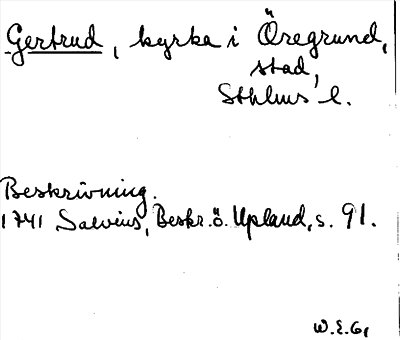 Gertrud, kyrka i Öregrund,
stad,
Sthlms l.
Beskrivning.
1741 Salvius, Beskr. ö. Upland, s. 91.
W.E.G.